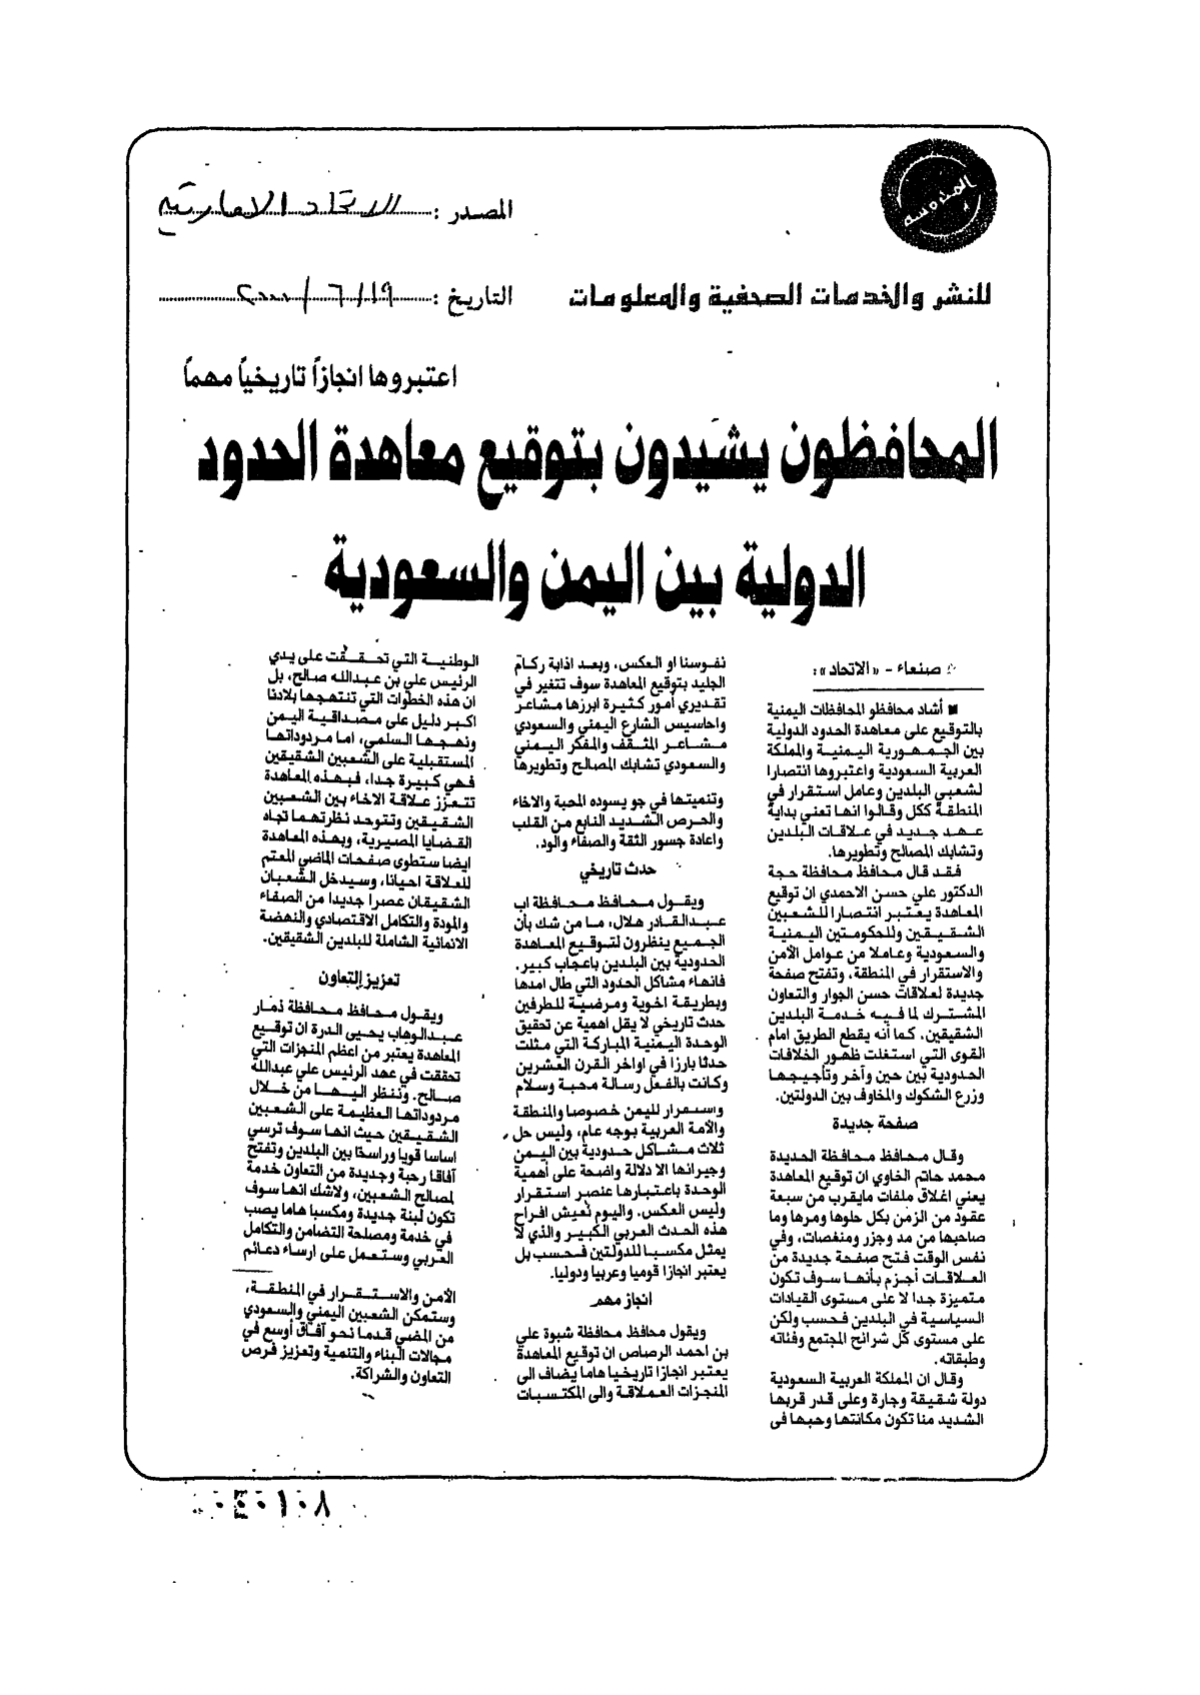 المصدر : الاتحاد الاماراتية
للنشر والخدمات الصحفية والمعلومات
التاريخ : ١٩/٦/٢٠٠٠
اعتبروها انجازاً تاريخياً مهماً
المحافظون يشيدون بتوقيع معاهدة الحدود
الدولية بين اليمن والسعودية
صنعاء - «الاتحاد»:
■ أشاد محافظو المحافظات اليمنية
بالتوقيع على معاهدة الحدود الدولية
بين الجمهورية اليمنية والمملكة
العربية السعودية واعتبروها انتصارا
لشعبي البلدين وعامل استقرار في
المنطقة ككل وقالوا انها تعني بداية
عهد جديد في علاقات البلدين
وتشابك المصالح وتطويرها.
فقد قال محافظ محافظة حجة
الدكتور علي حسن الاحمدي ان توقيع
المعاهدة يعتبر انتصارا للشعبين
الشقيقين وللحكومتين اليمنية
والسعودية وعاملا من عوامل الأمن
والاستقرار في المنطقة، وتفتح صفحة
جديدة لعلاقات حسن الجوار والتعاون
المشترك لما فيه خدمة البلدين
الشقيقين، كما أنه يقطع الطريق امام
القوى التي استغلت ظهور الخلافات
الحدودية بين حين وآخر وتأجيجها
وزرع الشكوك والمخاوف بين الدولتين.
صفحة جديدة
وقال محافظ محافظة الحديدة
محمد حاتم الخاوي ان توقيع المعاهدة
يعني اغلاق ملفات مايقرب من سبعة
عقود من الزمن بكل حلوها ومرها وما
صاحبها من مد وجزر ومنغصات، وفي
نفس الوقت فتح صفحة جديدة من
العلاقات أجزم بأنها سوف تكون
متميزة جدا لا على مستوى القيادات
السياسية في البلدين فحسب ولكن
على مستوى كل شرائح المجتمع وفئاته
وطبقاته.
وقال ان المملكة العربية السعودية
دولة شقيقة وجارة وعلى قدر قربها
الشديد منا تكون مكانتها وحبها في
نفوسنا او العكس، وبعد اذابة ركام
الجليد بتوقيع المعاهدة سوف تتغير في
تقديري أمور كثيرة ابرزها مشاعر
واحاسيس الشارع اليمني والسعودي
مشاعر المثقف والمفكر اليمني
والسعودي تشابك المصالح وتطويرها
وتنميتها في جو يسوده المحبة والاخاء
والحرص الشديد النابع من القلب
واعادة جسور الثقة والصفاء والود.
حدث تاريخي
ويقول محافظ محافظة اب
عبدالقادر هلال، ما من شك بأن
الجميع ينظرون لتوقيع المعاهدة
الحدودية بين البلدين باعجاب كبير.
فانهاء مشاكل الحدود التي طال امدها
وبطريقة اخوية ومرضية للطرفين
حدث تاريخي لا يقل اهمية عن تحقيق
الوحدة اليمنية المباركة التي مثلت
حدثا بارزا في اواخر القرن العشرين
وكانت بالفعل رسالة محبة وسلام
واستمرار لليمن خصوصا والمنطقة
والأمة العربية بوجه عام، وليس حل
ثلاث مشاكل حدودية بين اليمن
وجيرانها الا دلالة واضحة على أهمية
الوحدة باعتبارها عنصر استقرار
وليس العكس. واليوم نعيش افراح
هذه الحدث العربي الكبير والذي لا
يمثل مكسبا للدولتين فحسب بل
يعتبر انجازا قوميا وعربيا ودوليا.
انجاز مهم
ويقول محافظ محافظة شبوة علي
بن احمد الرصاص ان توقيع المعاهدة
يعتبر انجازا تاريخيا هاما يضاف الى
المنجزات العملاقة والى المكتسبات
الوطنية التي تحققت على يدي
الرئيس علي بن عبدالله صالح، بل
ان هذه الخطوات التي تنتهجها بلادنا
اكبر دليل على مصداقية اليمن
ونهجها السلمي، اما مردوداتها
المستقبلية على الشعبين الشقيقين
فهي كبيرة جدا، فبهذه المعاهدة
تتعزز علاقة الاخاء بين الشعبين
الشقيقين وتتوحد نظرتهما تجاه
القضايا المصيرية، وبهذه المعاهدة
ايضا ستطوى صفحات الماضي المعتم
للعلاقة احيانا، وسيدخل الشعبان
الشقيقان عصرا جديدا من الصفاء
والمودة والتكامل الاقتصادي والنهضة
الانمائية الشاملة للبلدين الشقيقين.
تعزيز التعاون
ويقول محافظ محافظة ذمار
عبدالوهاب يحيى الدرة ان توقيع
المعاهدة يعتبر من اعظم المنجزات التي
تحققت في عهد الرئيس علي عبدالله
صالح. وننظر اليها من خلال
مردوداتها العظيمة على الشعبين
الشقيقين حيث انها سوف ترسي
اساسا قويا وراسخا بين البلدين وتفتح
آفاقا رحبة وجديدة من التعاون خدمة
لمصالح الشعبين، ولاشك انها سوف
تكون لبنة جديدة ومكسبا هاما يصب
في خدمة ومصلحة التضامن والتكامل
العربي وستعمل على ارساء دعائم
الأمن والاستقرار في المنطقة،
وستمكن الشعبين اليمني والسعودي
من المضي قدما نحو آفاق أوسع في
مجالات البناء والتنمية وتعزيز فرص
التعاون والشراكة.